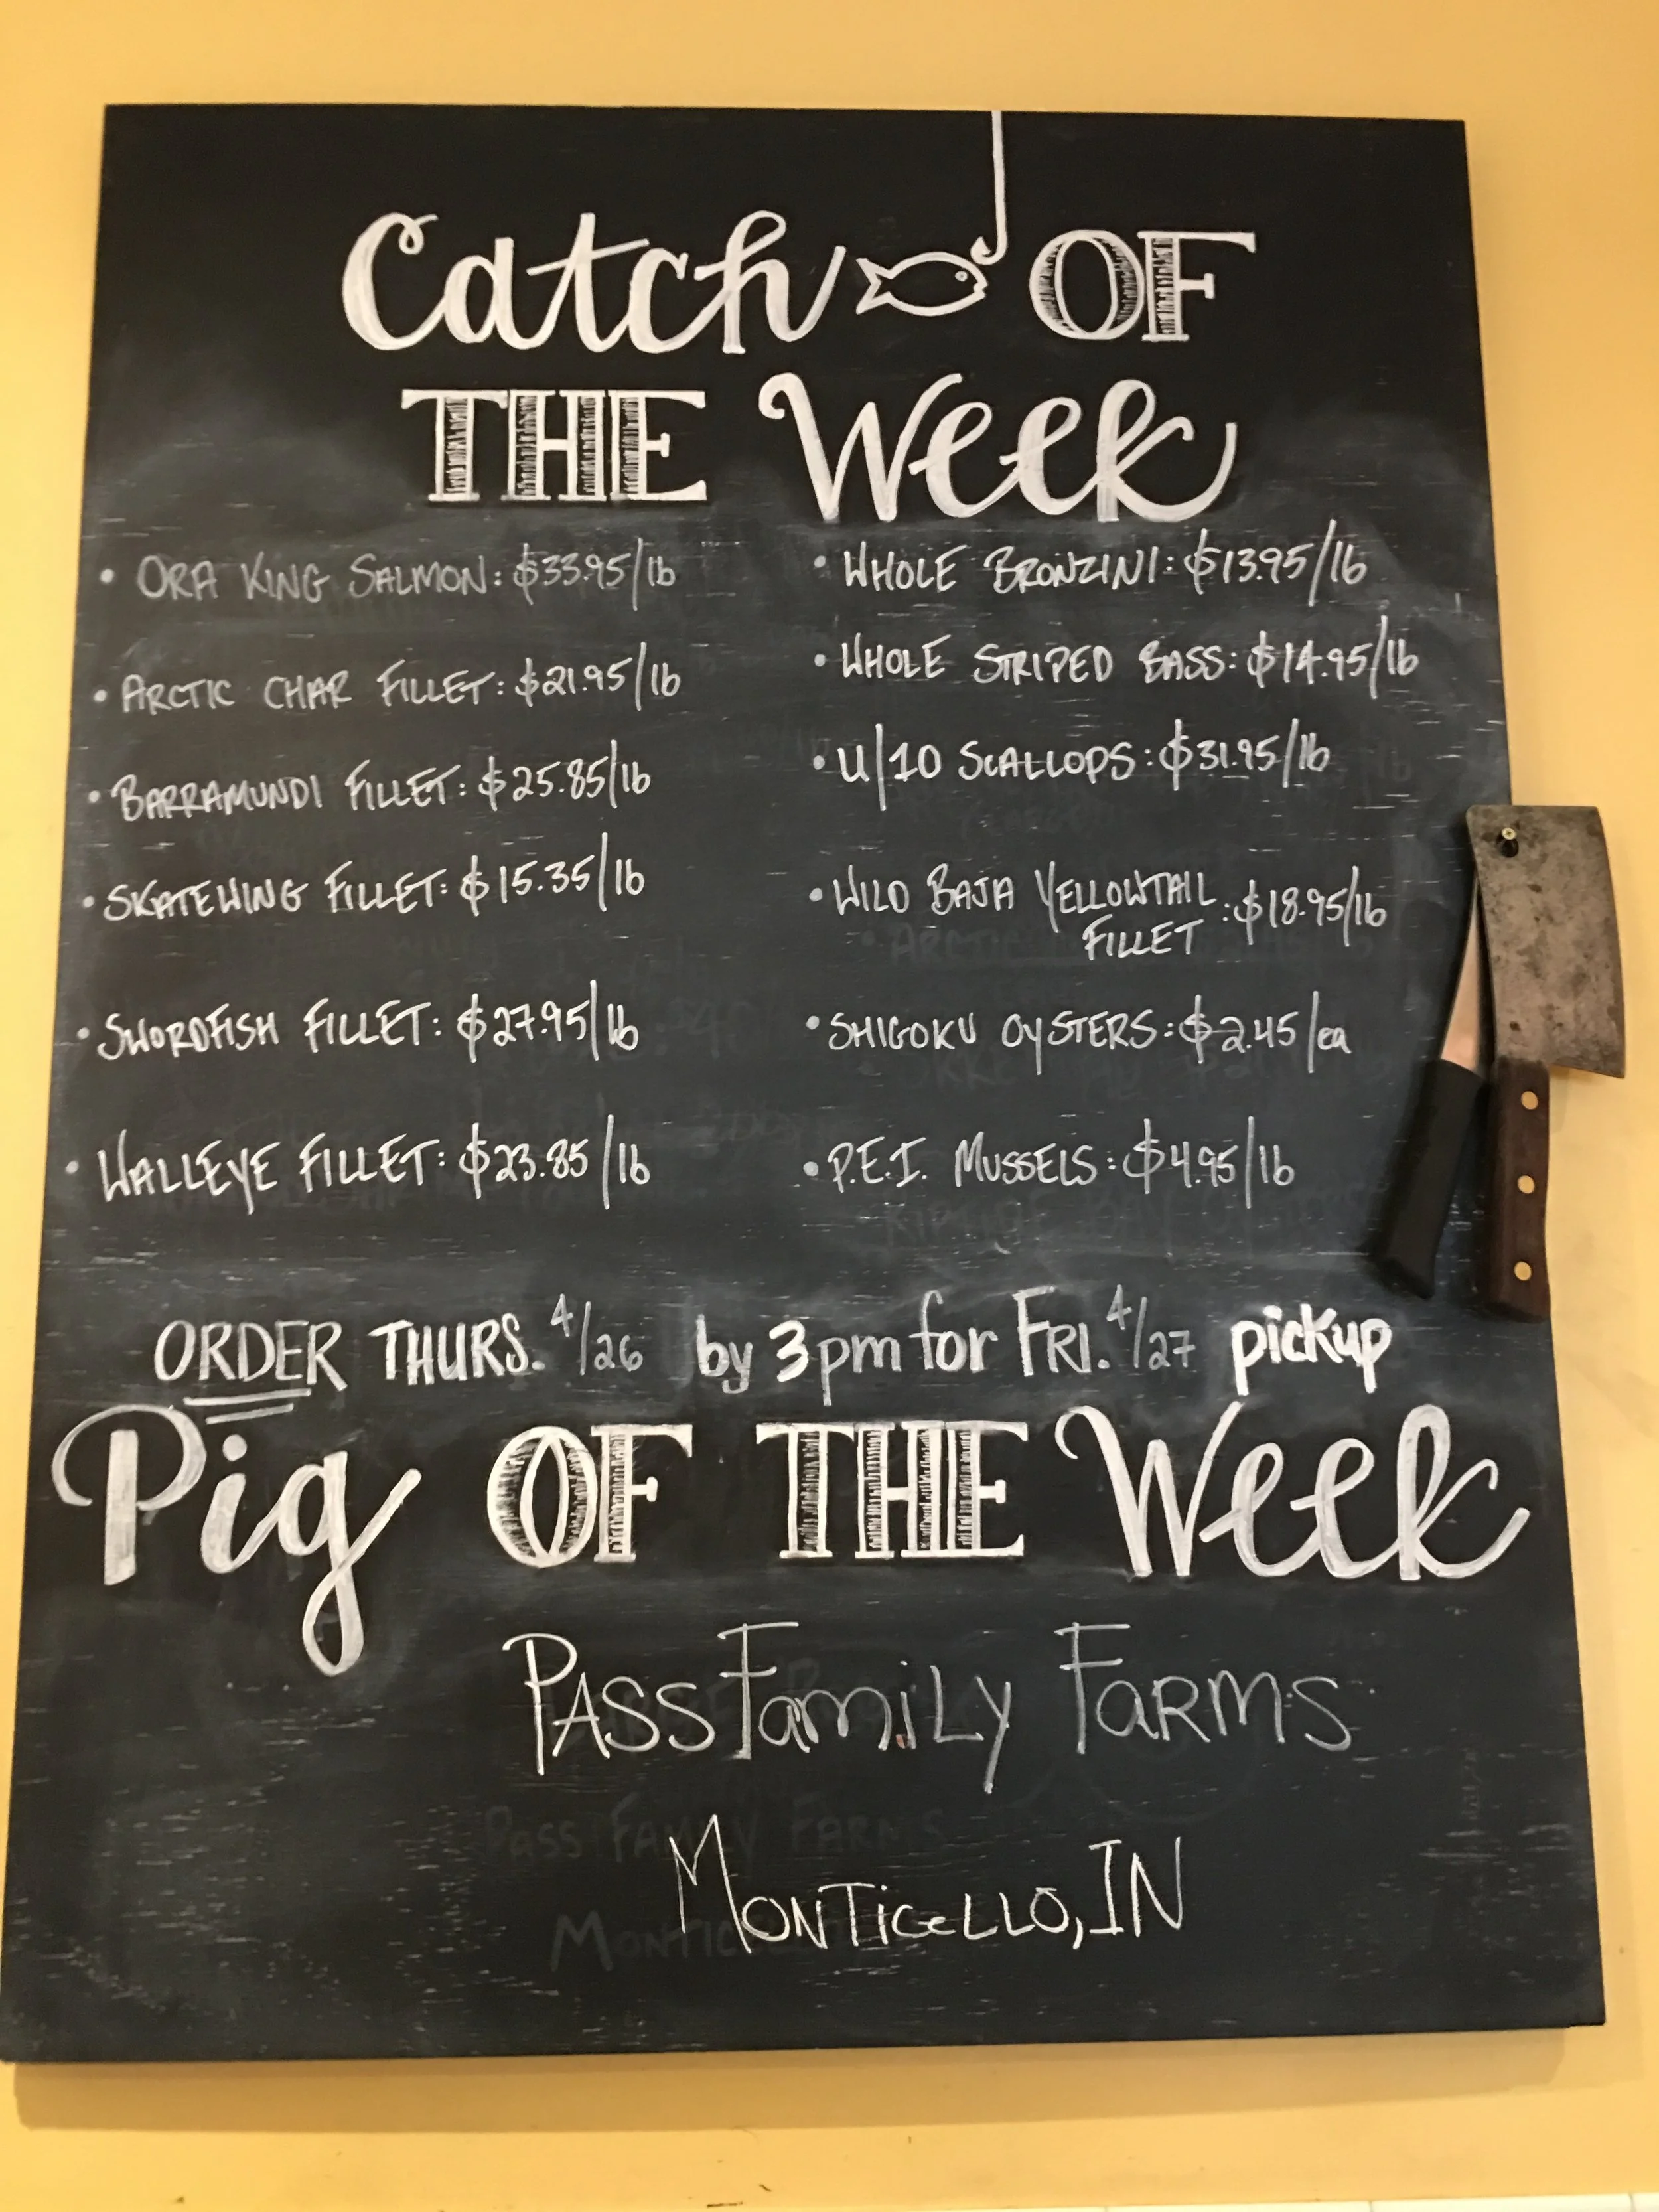 Catch OF
THE Week
• ORA KING SALMON: $33.95/lb
• ARCTIC CHAR FILLET: $21.95/lb
• BARRAMUNDI FILLET: $25.85/lb
• SKATEWING FILLET: $15.35/lb
• SWORDFISH FILLET: $27.95/lb
• WALLEYE FILLET: $23.85/lb
• WHOLE BRONZINI: $13.95/lb
• WHOLE STRIPED BASS: $14.95/lb
• U/10 SCALLOPS: $31.95/lb
• WILD BAJA YELLOWTAIL : $18.95/lb
FILLET
• SHIGOKU OYSTERS: $2.45/ea
• P.E.I. MUSSELS: $4.95/lb
ORDER THURS. 4/26 by 3pm for FRI. 4/27 pickup
Pig OF THE Week
PASS FamiLy FARMS
MONTiceLLO, IN